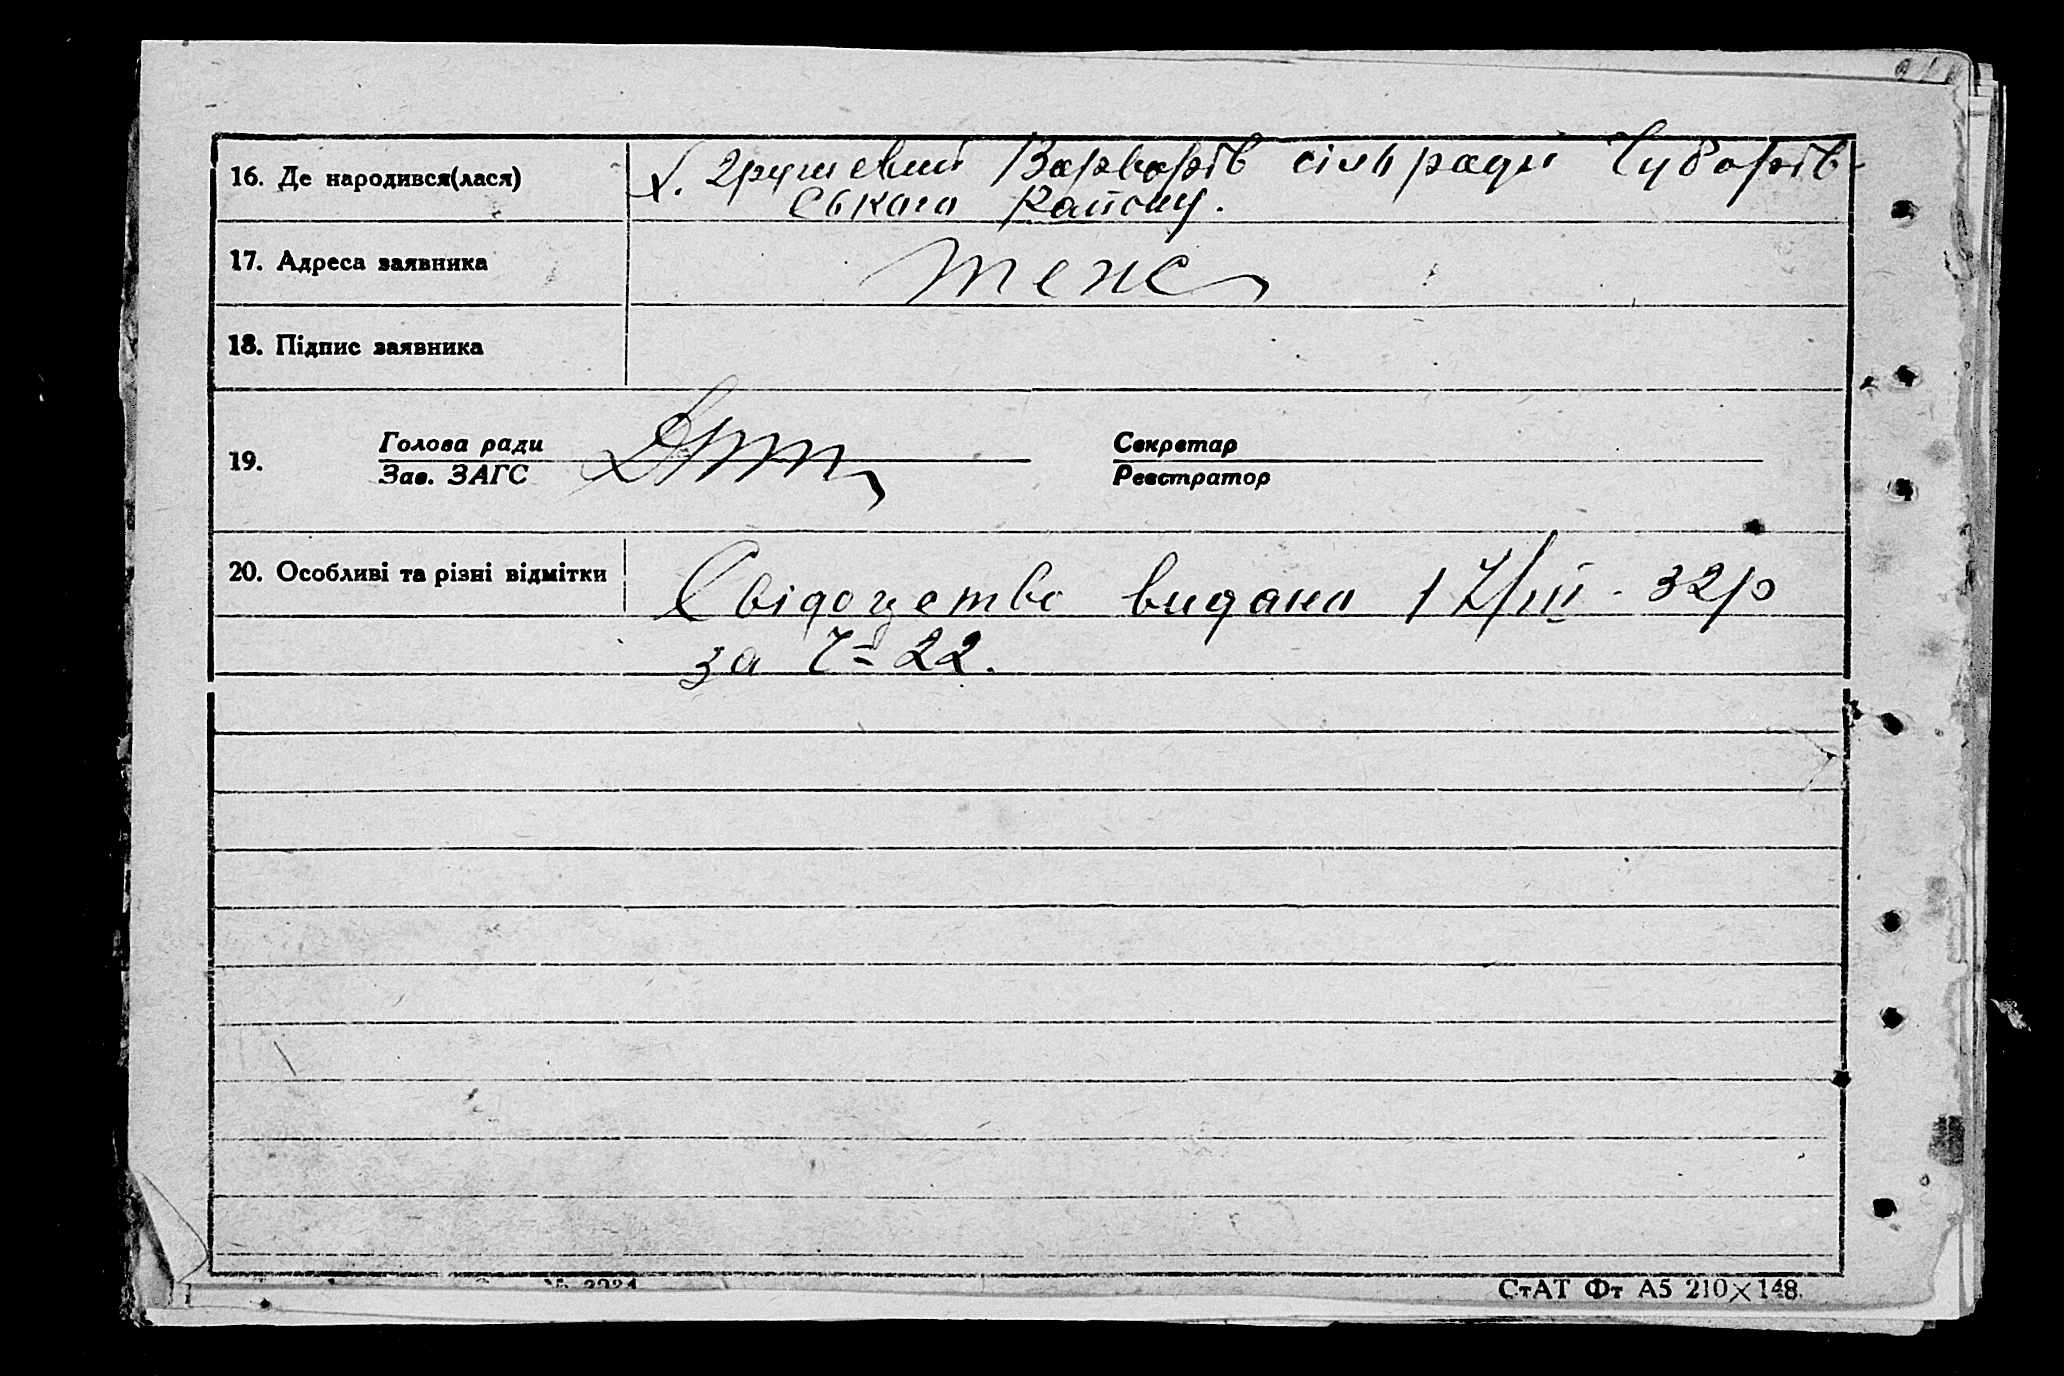 16. Де народився(лася)
х. Грушевий Варварів сільради Чубарів-
ського Району.
17. Адреса заявника
теж
18. Підпис заявника
19.
Голова ради
Зав. ЗАГС
Секретар
Реєстратор
20. Особливі та різні відмітки
Свідоцтво видано 17/III-32р
за Ч= 22.
СтАТ Фт А5 210×148.